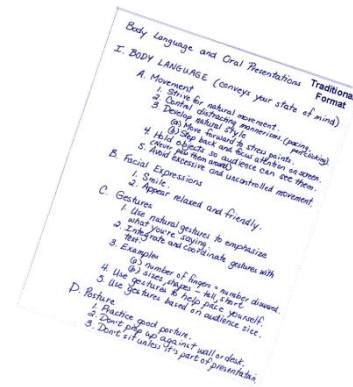 Traditional
Format
Body Language and Oral Presentations
I. BODY LANGUAGE (conveys your state of mind)
A. Movement
1. Strive for natural movement.
2. Control distracting mannerisms (pacing,
3. Develop natural style
(a) Move forward to stress points.
(b) Step back and focus attention on screen.
4. Hold objects so audience can see them.
(Never pass them around)
5. Avoid excessive and uncontrolled movement.
B. Facial Expressions
1. Smile.
2. Appear relaxed and friendly.
C. Gestures
1. Use natural gestures to emphasize
what you're saying.
2. Integrate and coordinate gestures with
text.
3. Examples
(a) number of fingers = number discussed.
(b) sizes, shapes - tall, short
4. Use gestures to help pace yourself.
5. Use gestures based on audience size.
D. Posture
1. Practice good posture.
2. Don't prop up against wall or desk.
3. Don't sit unless it's part of presentation.